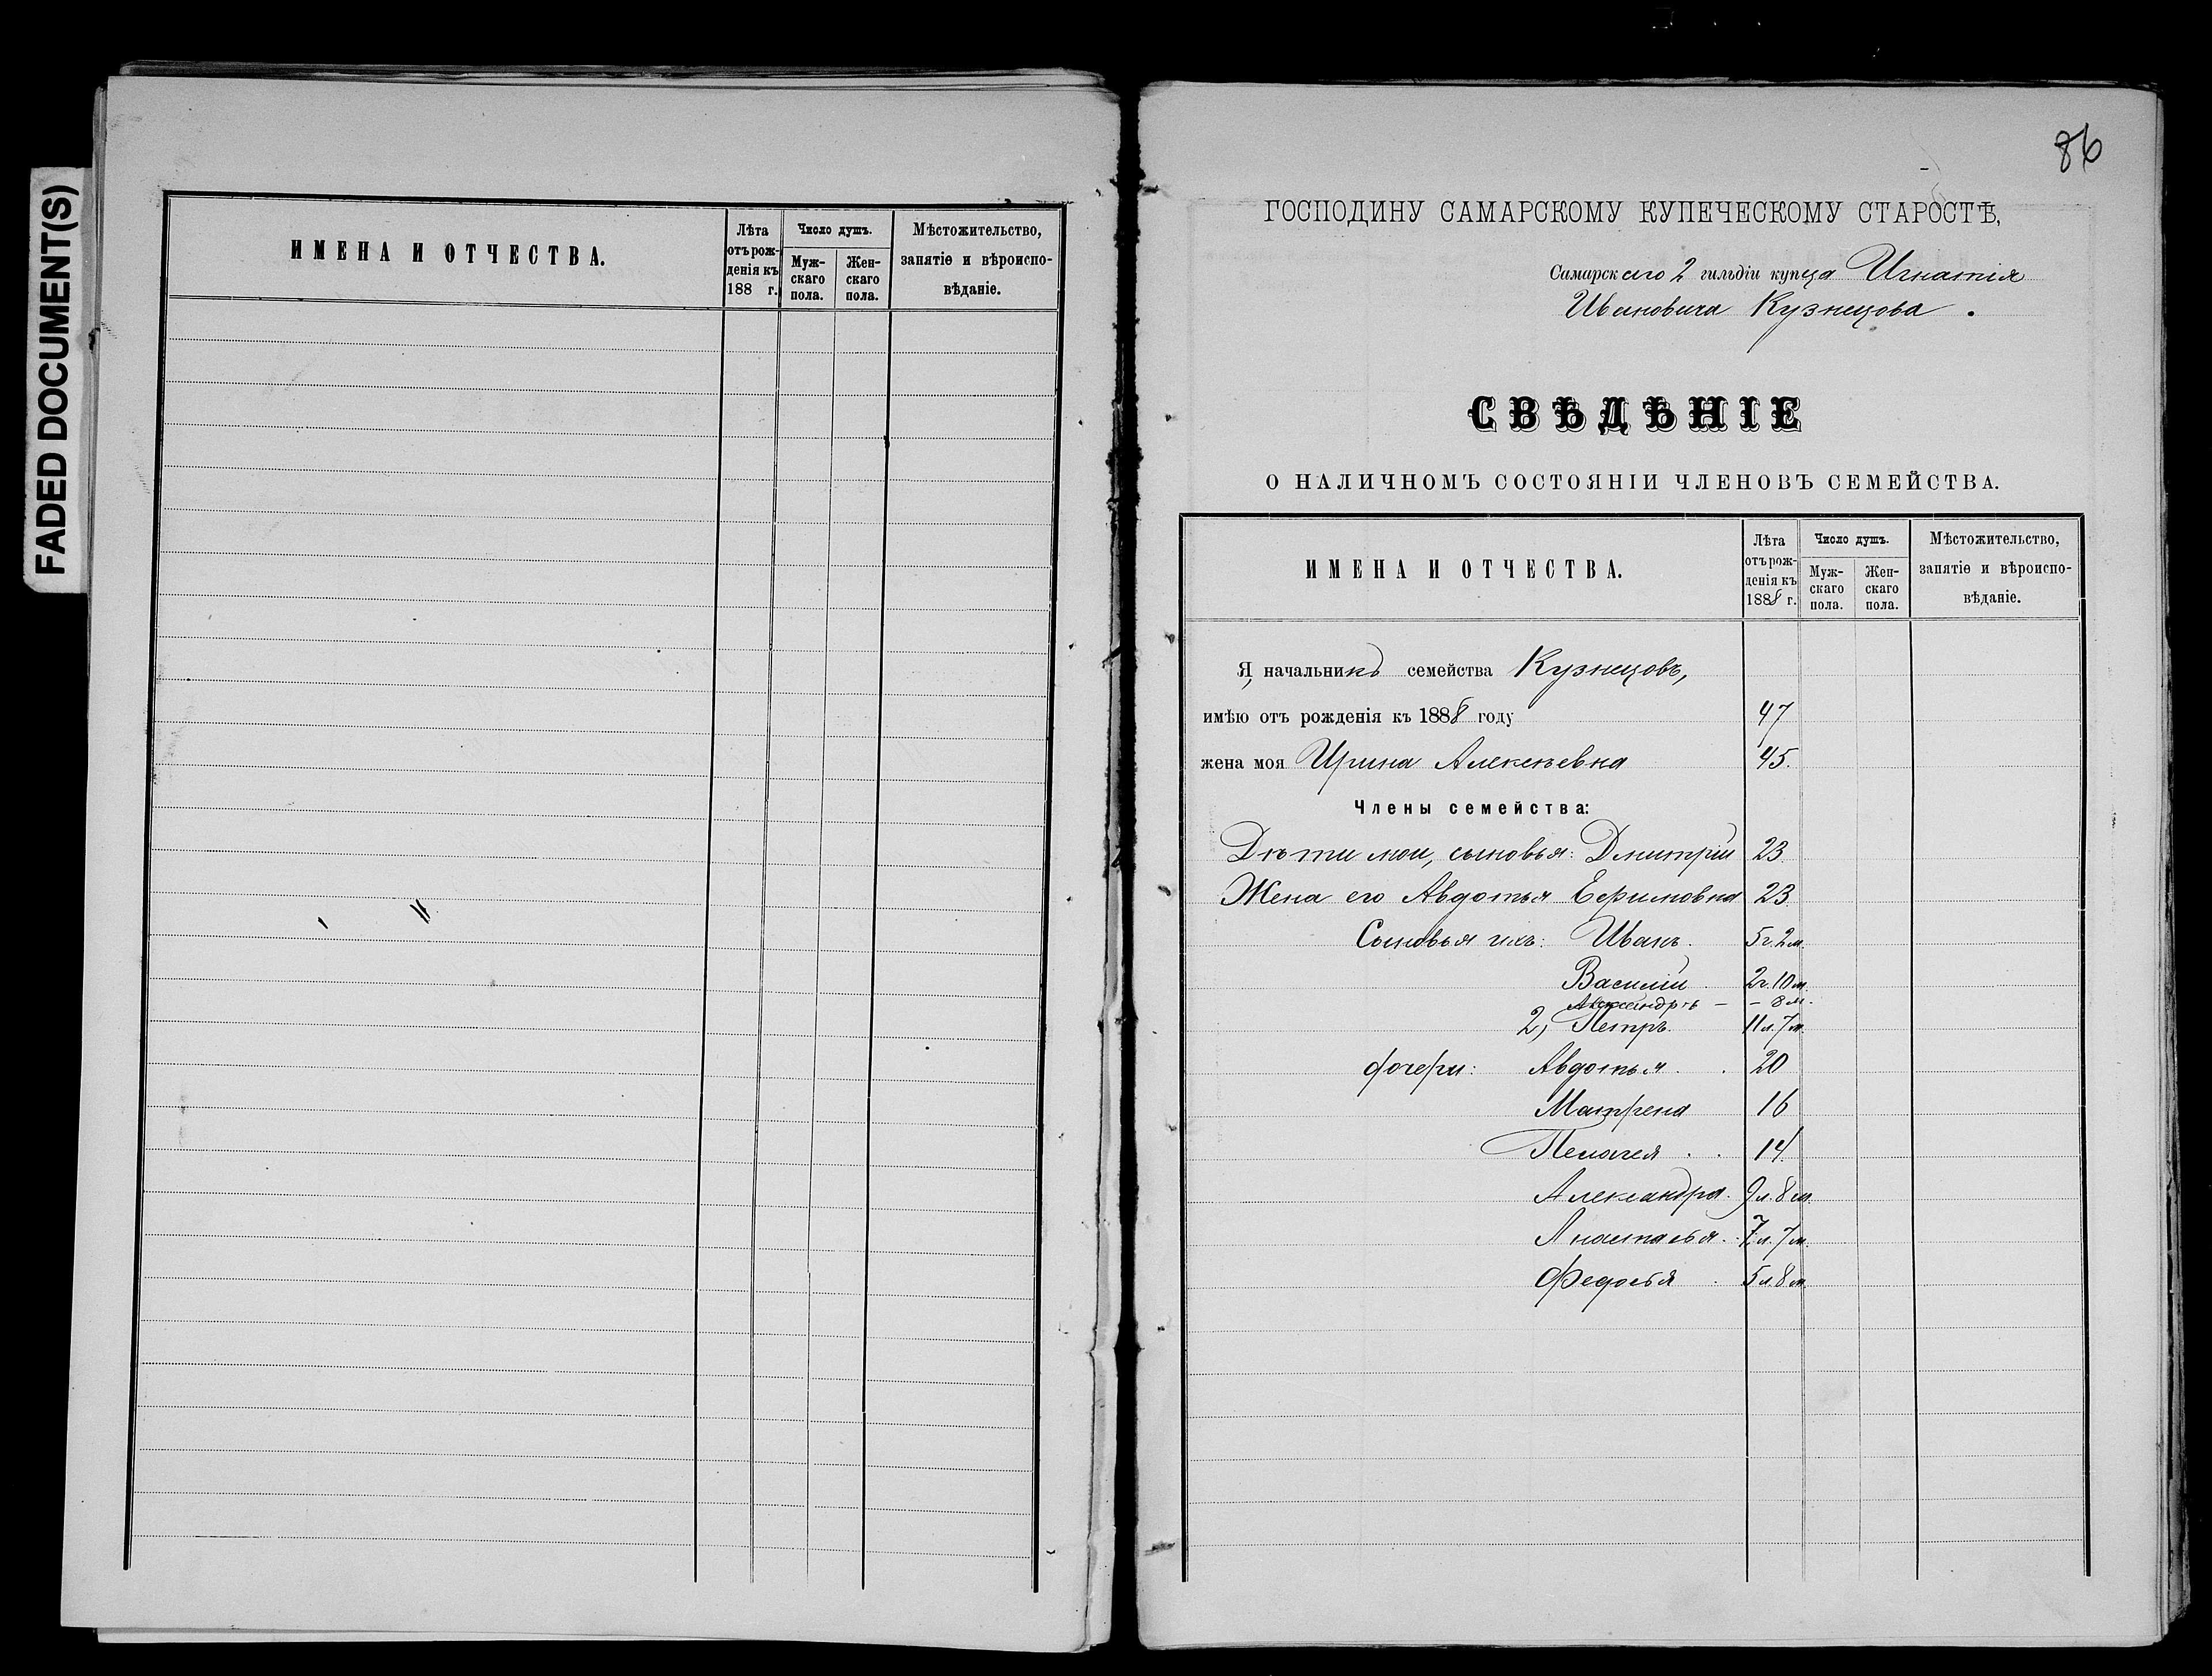 FADED DOCUMENT(S)
ИМЕНА И ОТЧЕСТВА.
Лѣта отъ рожденія къ 188 г.
Число душъ.
Мужскаго пола.
Женскаго пола.
Мѣстожительство, занятіе и вѣроисповѣданіе.
86
ГОСПОДИНУ САМАРСКОМУ КУПЕЧЕСКОМУ СТАРОСТѢ,
Самарскаго 2 гильдіи купца Игнатія
Ивановича Кузнецова.
СВѢДѢНІЕ
О НАЛИЧНОМЪ СОСТОЯНІИ ЧЛЕНОВЪ СЕМЕЙСТВА.
ИМЕНА И ОТЧЕСТВА.
Лѣта отъ рожденія къ 1888 г.
Число душъ.
Мужскаго пола.
Женскаго пола.
Мѣстожительство, занятіе и вѣроисповѣданіе.
Я, начальникъ семейства Кузнецовъ,
имѣю отъ рожденія къ 1888 году 47
жена моя Ирина Алексѣевна 45.
Члены семейства:
Дѣти мои, сыновья: Дмитрій 23
Жена его Авдотья Ефимовна 23
Сыновья ихъ: Иванъ. 5г. 2м.
Василій. 2г. 10м.
Александръ – – 8 м.
2, Петръ. 11л. 7м.
дочери: Авдотья. . 20
Матрена 16
Пелагея . . 14
Александра. 9л. 8м.
Анастасья. 7л. 7м.
Федосья . 5л 8м